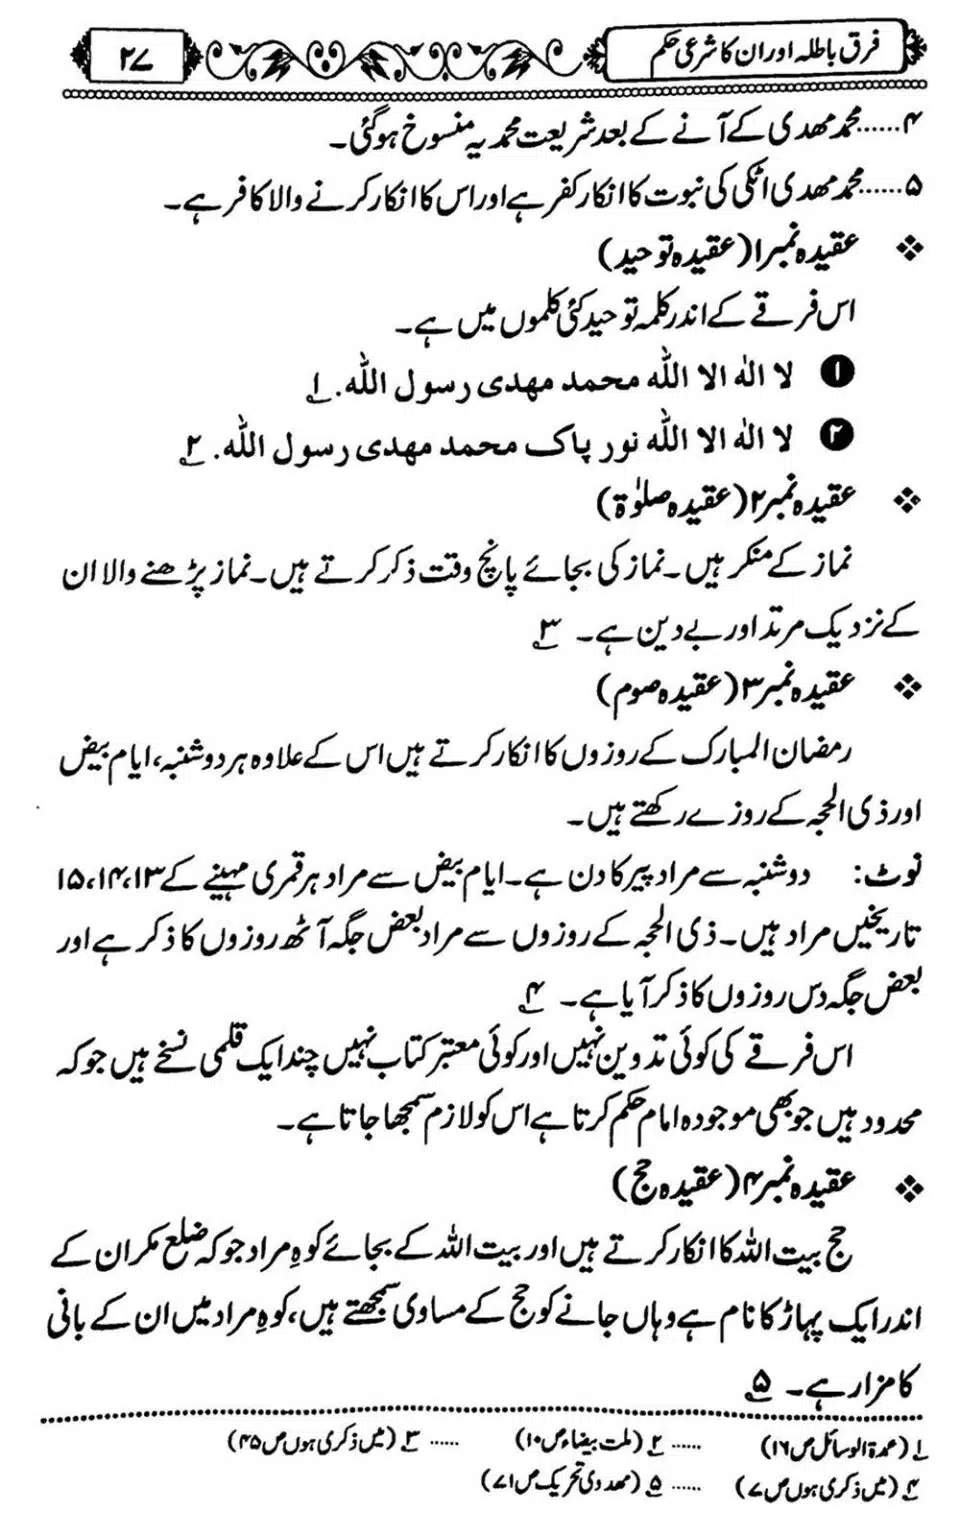 فرق باطلہ اور ان کا شرعی حکم ۲۷
۴......محمد مھدی کے آنے کے بعد شریعت محمدیہ منسوخ ہوگئی۔
۵......محمد مھدی اٹکی کی نبوت کا انکار کفر ہے اور اس کا انکار کرنے والا کافر ہے۔
❖ عقیدہ نمبر۱(عقیدہ توحید)
اس فرقے کے اندر کلمہ توحید کئی کلموں میں ہے۔
❶ لا الٰہ الا اللّٰہ محمد مھدی رسول اللّٰہ. ۱
❷ لا الٰہ الا اللّٰہ نور پاک محمد مھدی رسول اللّٰہ. ۲
❖ عقیدہ نمبر۲(عقیدہ صلوٰۃ)
نماز کے منکر ہیں۔نماز کی بجائے پانچ وقت ذکر کرتے ہیں۔نماز پڑھنے والا ان
کے نزدیک مرتد اور بے دین ہے۔ ۳
❖ عقیدہ نمبر۳(عقیدہ صوم)
رمضان المبارک کے روزوں کا انکار کرتے ہیں اس کے علاوہ ہر دوشنبہ،ایام بیض
اور ذی الحجہ کے روزے رکھتے ہیں۔
نوٹ: دوشنبہ سے مراد پیر کا دن ہے۔ایام بیض سے مراد ہر قمری مہینے کے ۱۳،۱۴،۱۵
تاریخیں مراد ہیں۔ذی الحجہ کے روزوں سے مراد بعض جگہ آٹھ روزوں کا ذکر ہے اور
بعض جگہ دس روزوں کا ذکر آیا ہے۔ ۴
اس فرقے کی کوئی تدوین نہیں اور کوئی معتبر کتاب نہیں چند ایک قلمی نسخے ہیں جو کہ
محدود ہیں جو بھی موجودہ امام حکم کرتا ہے اس کو لازم سمجھا جاتا ہے۔
❖ عقیدہ نمبر۴(عقیدہ حج)
حج بیت اللہ کا انکار کرتے ہیں اور بیت اللہ کے بجائے کوہِ مراد جو کہ ضلع مکران کے
اندر ایک پہاڑ کا نام ہے وہاں جانے کو حج کے مساوی سمجھتے ہیں،کوہِ مراد میں ان کے بانی
کا مزار ہے۔ ۵
۱ (عمدۃ الوسائل ص۱۶) ...... ۲ (ملت بیضاء ص۱۰) ...... ۳ (میں ذکری ہوں ص۴۵)
۴ (میں ذکری ہوں ص۷) ...... ۵ (مھدوی تحریک ص۷۱)